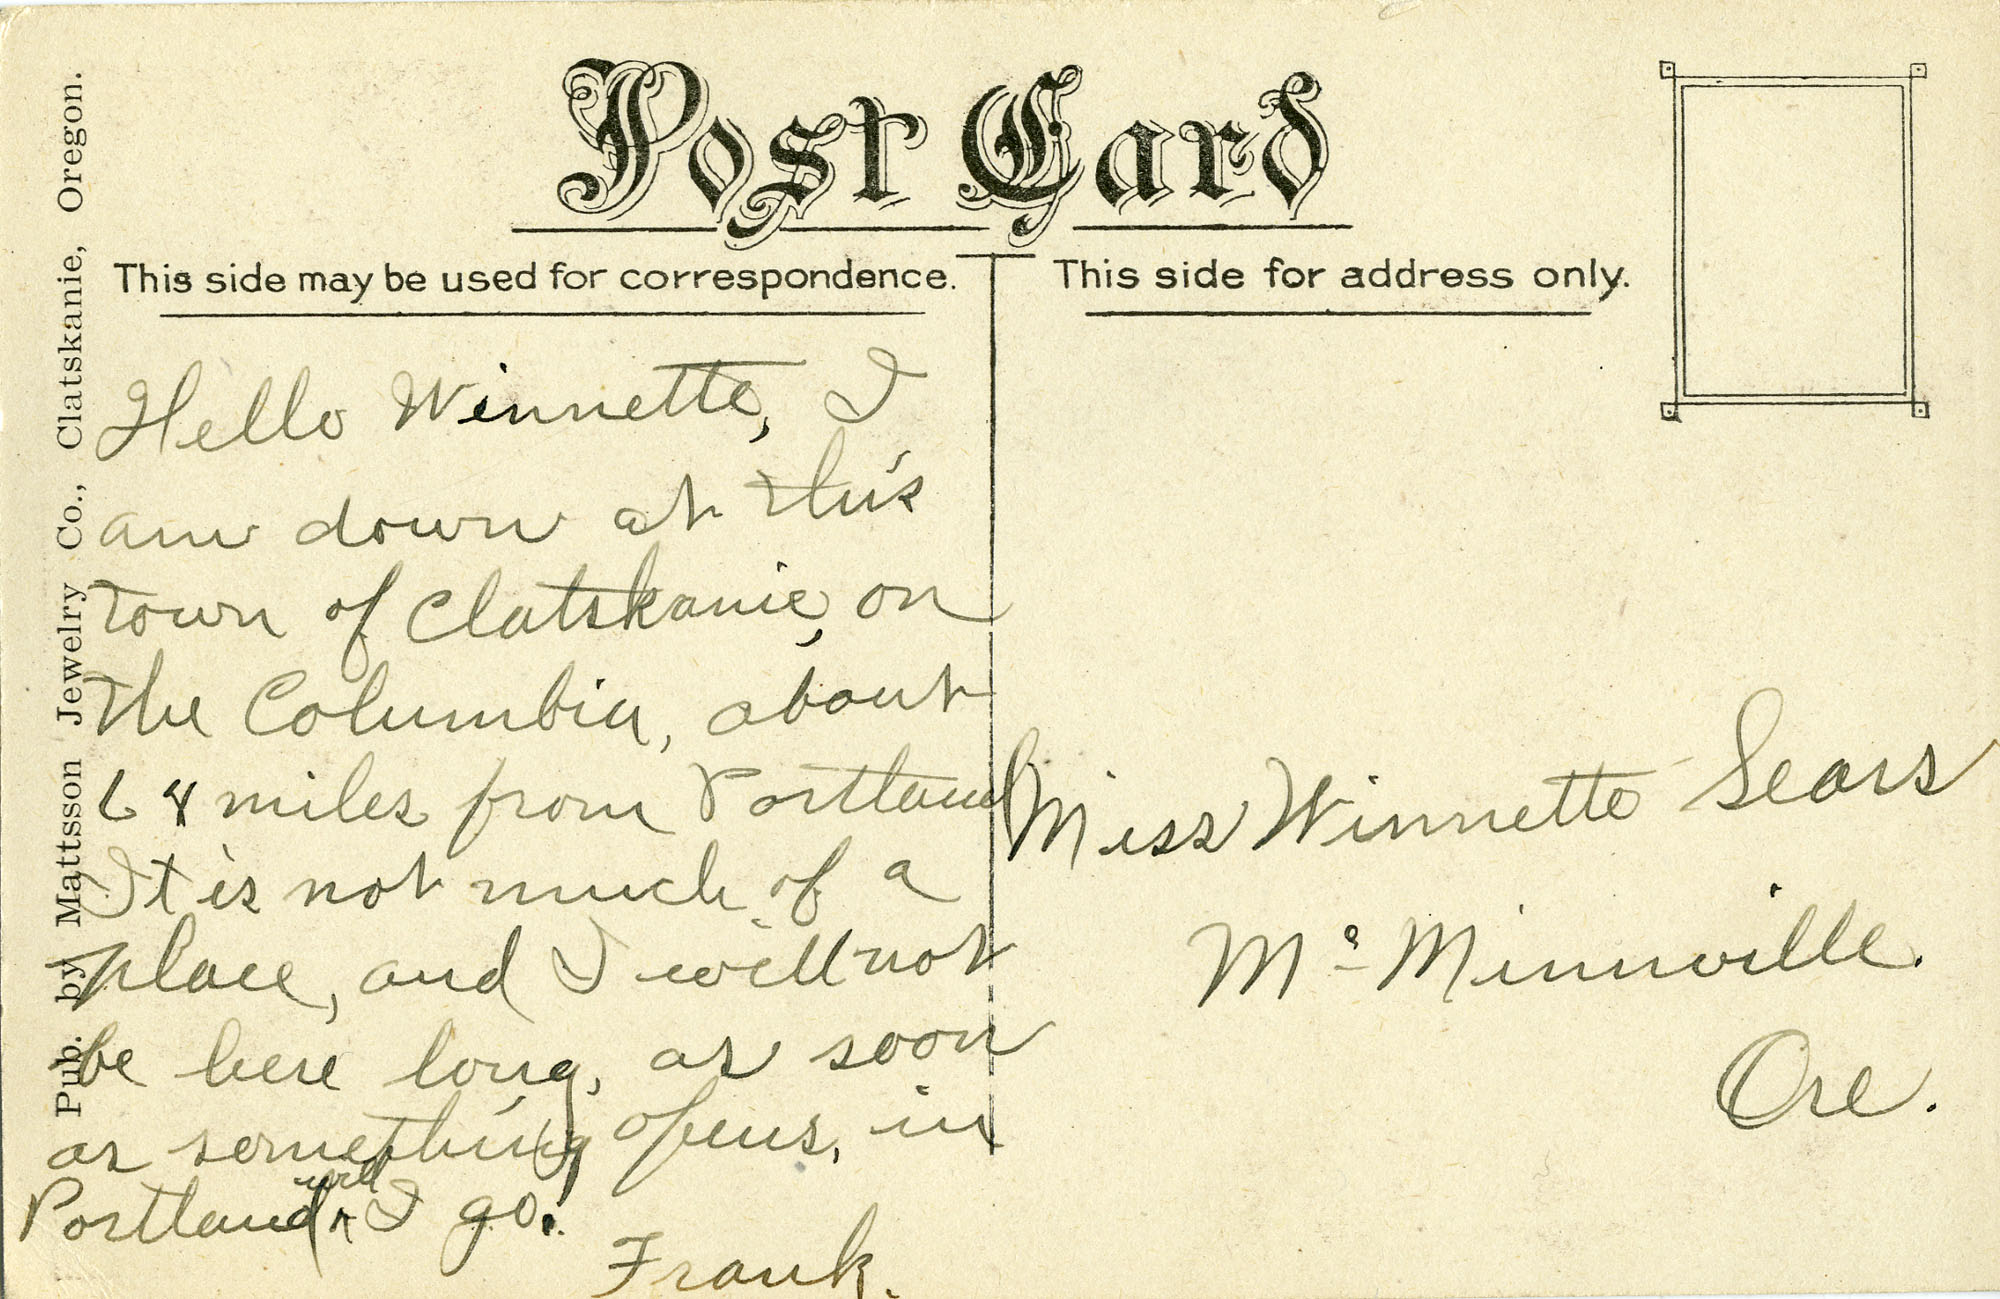 Post Card
This side may be used for correspondence.
This side for address only.
Pub. by Mattsson Jewelry Co., Clatskanie, Oregon.
Hello Winnette, I
am down at this
town of Clatskanie, on
the Columbia, about
68 miles from Portland
It is not much of a
place, and I will not
be here long, as soon
as something opens, in
Portland will I go.
Frank.
Miss Winnette Sears
Mc Minnville.
Ore.